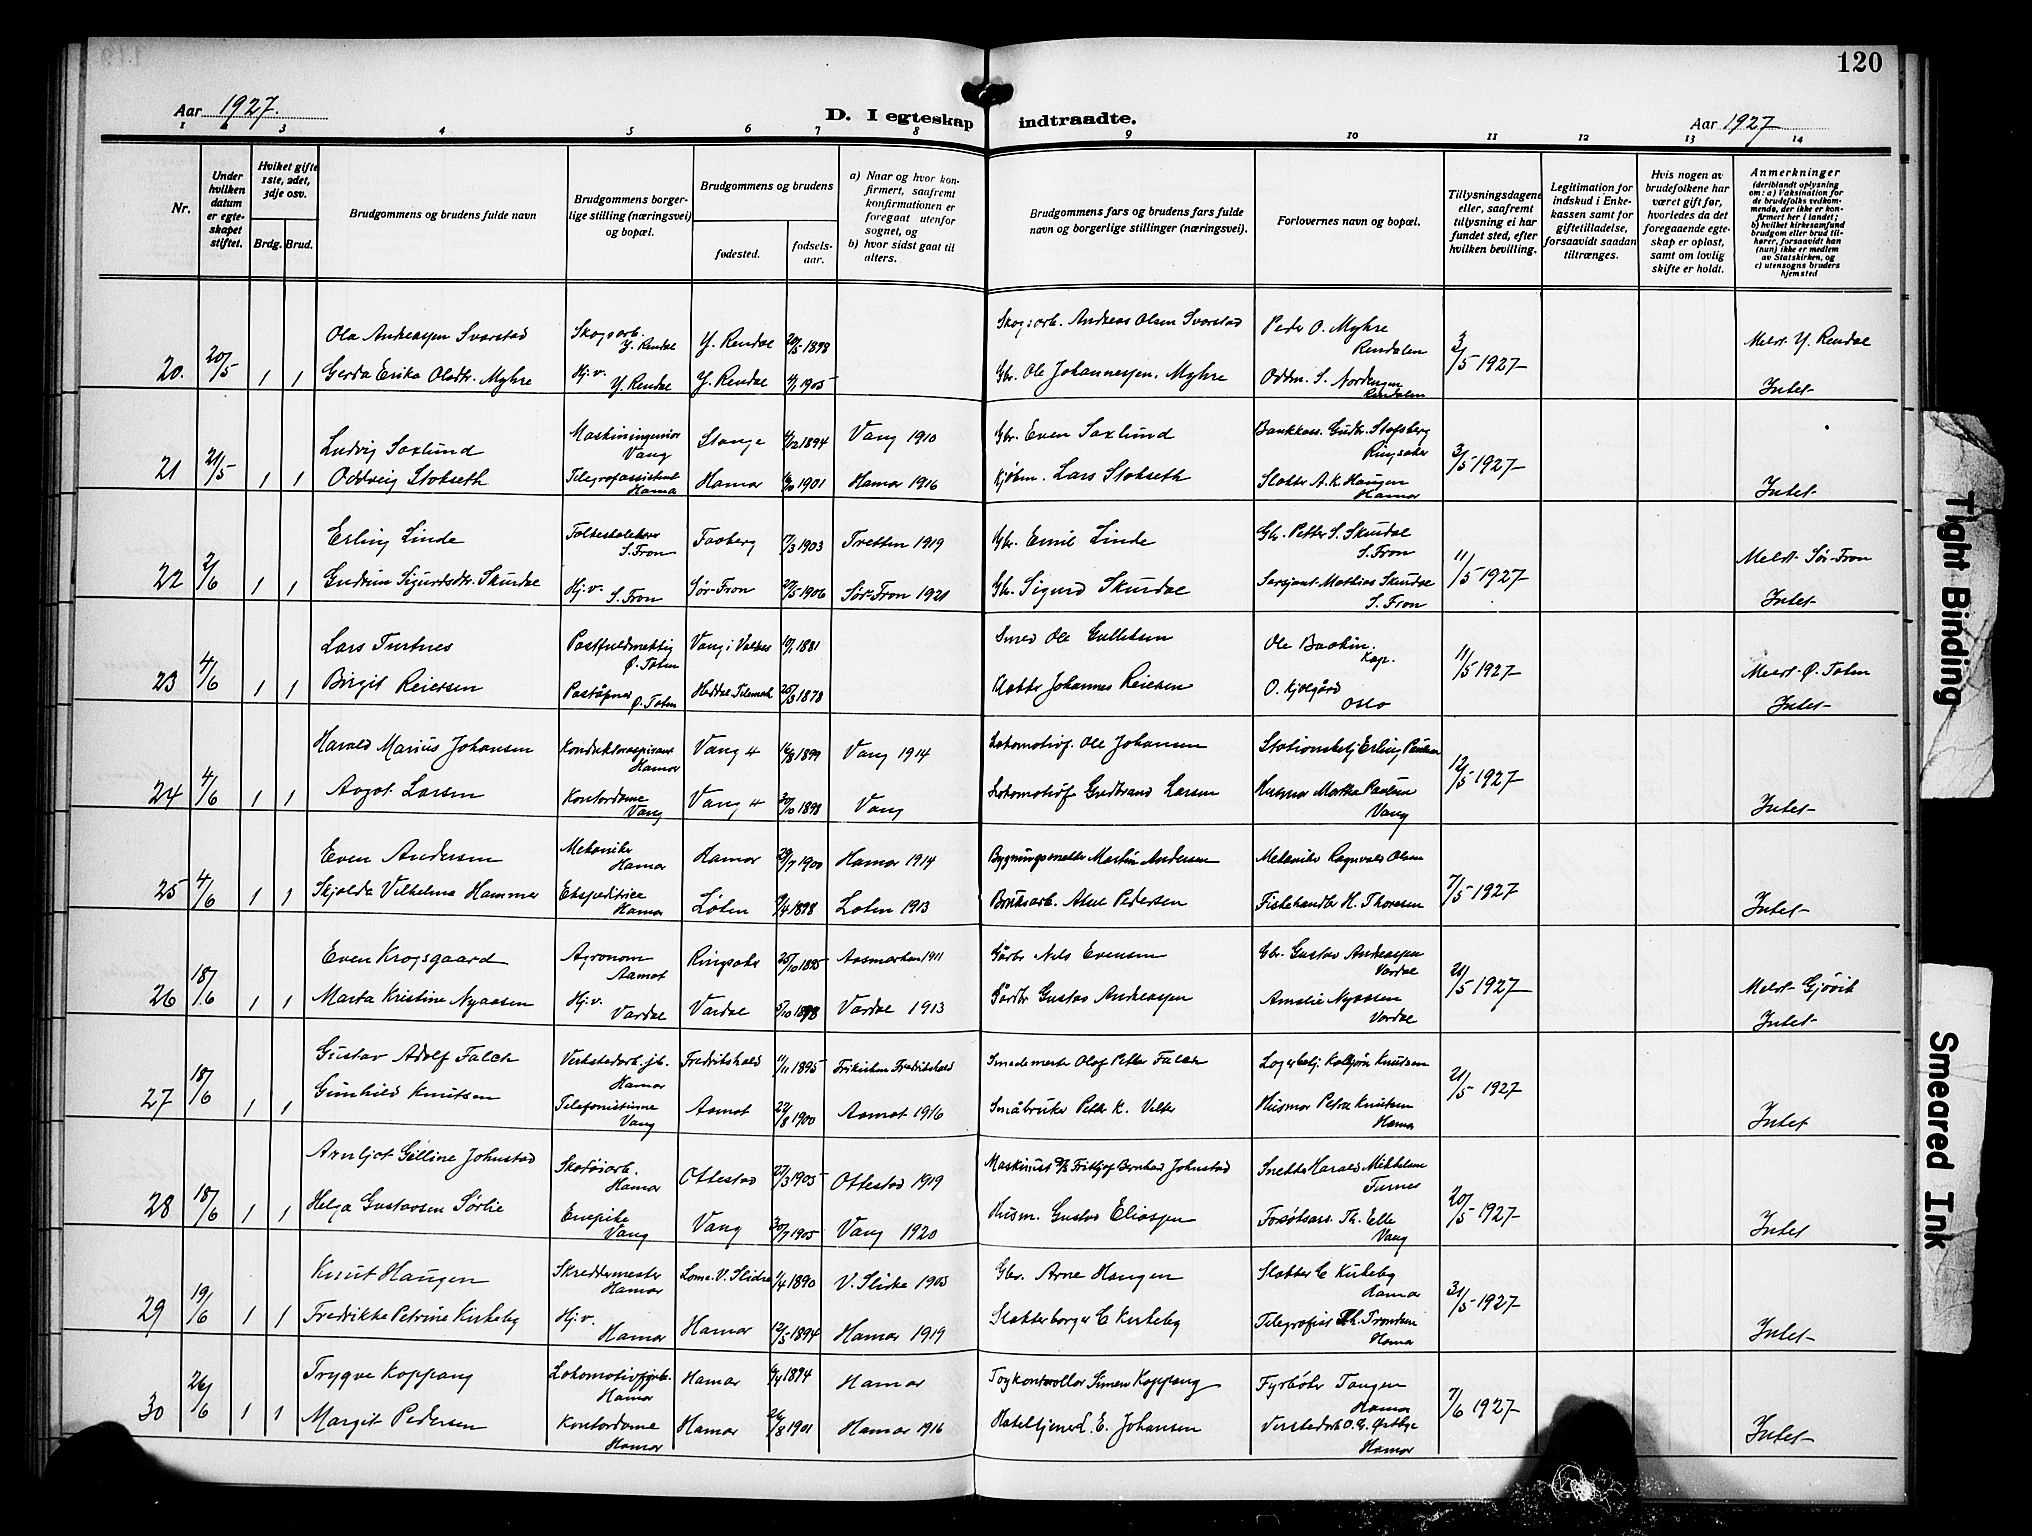 120
Aar 1927.
D. I egteskap indtraadte.
Aar 1927
1 2 3 4 5 6 7 8 9 10 11 12 13 14
Nr.
Under hvilken datum er egteskapet stiftet.
Hvilket gifte 1ste, 2det, 3dje osv.
Brdg. Brud.
Brudgommens og brudens fulde navn
Brudgommens borgerlige stilling (næringsvei) og bopæl.
Brudgommens og brudens
fødested.
fødselsaar.
a) Naar og hvor konfirmert, saafremt konfirmationen er foregaat utenfor sognet, og
b) hvor sidst gaat til alters.
Brudgommens fars og brudens fars fulde navn og borgerlige stillinger (næringsvei).
Forlovernes navn og bopæl.
Tillysningsdagene eller, saafremt tillysning ei har fundet sted, efter hvilken bevilling.
Legitimation for indskud i Enkekassen samt for giftetilladelse, forsaavidt saadan tiltrænges.
Hvis nogen av brudefolkene har været gift før, hvorledes da det foregaaende egteskap er opløst, samt om lovlig skifte er holdt.
Anmerkninger
(deriblandt oplysning om: a) Vaksination for de brudefolks vedkommende, der ikke er konfirmert her i landet; b) hvilket kirkesamfund brudgom eller brud tilhører, forsaavidt han (hun) ikke er medlem av Statskirken, og c) utensogns bruders hjemsted
20. 20/5 1 1 Ola Andreassen Svarstad Skogsarb. Y. Rendal Y. Rendal 20/5 1898 Skogsarb. Andreas Olsen Svarstad Peder O. Myhre Rendalen 3/5 1927 Meldt Y. Rendal
Gerda Erika Olsdtr. Myhre Hj.v. Y. Rendal Y. Rendal 1905 Gbr. Ole Johannessen Myhre Oddm. S. Nordengen Rendalen Intet
21 21/5 1 1 Ludvig Saxlund Maskiningeniør Vang Stange 1894 Vang 1910 Gbr. Even Saxlund Bankkass. Gudbr. Stafsberg Ringsaker 3/5 1927
Oddveig Stokseth Telegrafassistent Hamar Hamar 1901 Hamar 1916 Kjøbm. Lars Stokseth Slakter A. K. Haugen Hamar Intet
22 2/6 1 1 Erling Linde S. Fron Faaberg 1903 Tretten 1919 Gbr. Emil Linde Gbr. Petter S. Skurdal S. Fron 11/5 1927 Meldt Sør-Fron
Gudrun Sigurdsdtr. Skurdal Hj.v. S. Fron Sør-Fron 1906 Sør-Fron 1921 Gbr. Sigurd Skurdal Sersjant Mathias Skurdal S. Fron Intet
23 4/6 1 1 Lars Turtnes Postfuldmektig Ø. Toten Vang i Valdres 1881 Smed Ole Gulliksen Ole Baakin Kap. 11/5 1927 Meldt Ø. Toten
Birgit Reiersen Poståpner Ø. Toten Heddal Telemark 1878 Johannes Reiersen O. Kjølgård Oslo Intet
24 4/6 1 1 Harald Marius Johansen Konduktøraspirant Hamar Vang H 16/8 1899 Vang 1914 Lokomotivf. Ole Johansen Stationsbetj. Erling Paulsen 12/5 1927
Aagot Larsen Kontordame Vang Vang H 30/10 1898 Vang Lokomotivf. Gudbrand Larsen Husmor Marthe Paulsen Vang Intet
25 4/6 1 1 Even Andersen Mekaniker Hamar Hamar 29/7 1900 Hamar 1914 Bygningssnekker Martin Andersen Mekaniker Ragnvald Olsen 7/5 1927
Skjolda Vilhelma Hammer Ekspeditrice Hamar Løten 1898 Løten 1913 Bruksarb. Aksel Pedersen Fiskehandler H. Thoresen Intet
26 18/6 1 1 Even Krogsgaard Agronom Aamot Ringsaker 25/10 1895 Aasmarken 1911 Gårbr. Nils Evensen Gbr. Gustav Andreassen Vardal 21/5 1927 Meldt Gjøvik
Marta Kristine Nyaasen Hj.v. Vardal Vardal 5/10 1898 Vardal 1913 Gårbr. Gustav Andreassen Amalie Nyaasen Vardal Intet
27 18/6 1 1 Gustav Adolf Falch Verkstedarb. jb. Hamar Fredrikshald 11/11 1895 Frikirken Fredrikshald Smedmester Olaf Petter Falch Lagerbetj. Kolbjørn Knutsen 21/5 1927
Gunhild Knutsen Telefonistinne Vang Aamot 22/8 1900 Aamot 1916 Småbruker Petter K. Velter Husmor Petra Knutsen Hamar Intet
28 18/6 1 1 Arnljot Gilline Johnstad Skotøiarb. Hamar Ottestad 27/3 1905 Ottestad 1919 Maskinist Fritljof Bernhard Johnstad Snekker Harald Mikkelsen Furnes 20/5 1927
Helga Gustavsen Sørlie Enepike Vang Vang 30/7 1905 Vang 1920 Husm. Gustav Eliassen Th. Elle Vang Intet
29 19/6 1 1 Knut Haugen Skreddermester Hamar Lome. V. Slidre 1/4 1890 V. Slidre 1905 Gbr. Arne Haugen Slakter C Kirkeby Hamar 31/5 1927
Fredrikke Petrine Kirkeby Hj.v. Hamar Hamar 12/5 1894 Hamar 1919 Slakterborger C Kirkeby Telegrafist Th. Trondsen Hamar Intet
30 26/6 1 1 Trygve Koppang Lokomotivfyrb. Hamar Hamar 1894 Hamar Togkontrollør Simen Koppang Fyrbøter Tangen Hamar 7/6 1927
Margit Pedersen Kontordame Hamar Hamar 26/8 1901 Hamar 1916 Hotelltjener L. E. Johansen Verkstedarb. O. G. Østbye Hamar Intet
Tight Binding
Smeared Ink